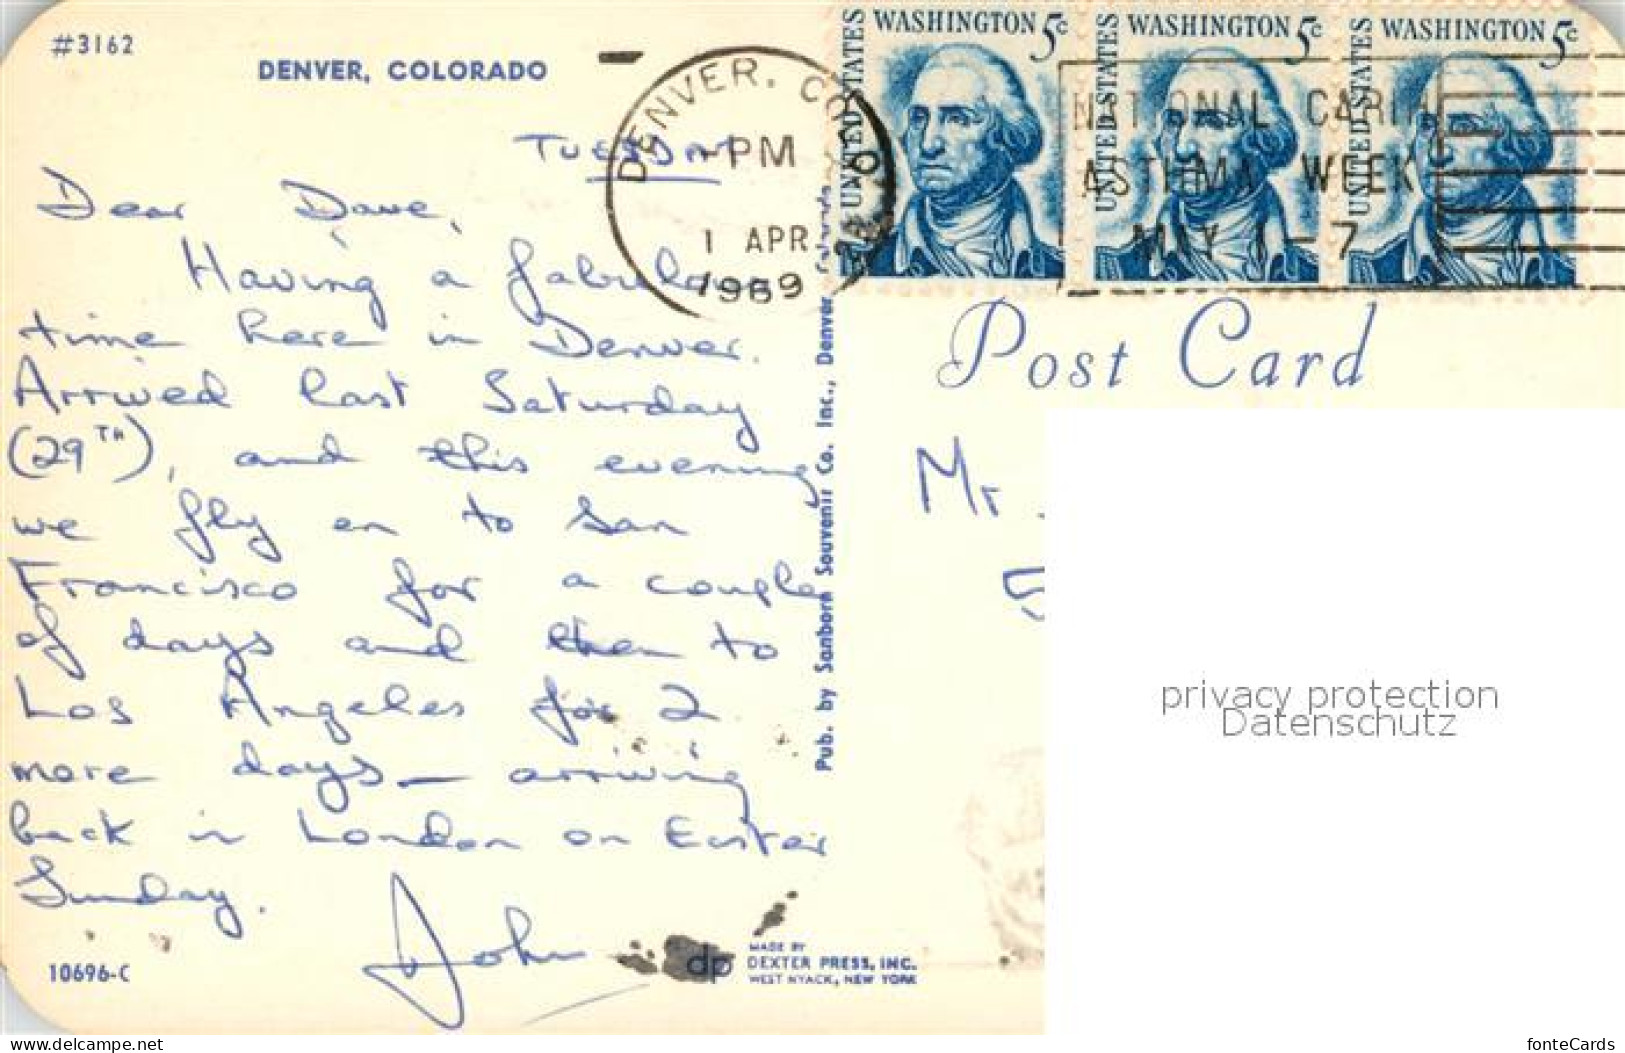 #3162
DENVER, COLORADO
TUESDAY
Dear Dave,
Having a fabulous
time here in Denver.
Arrived last Saturday
(29TH), and this evening
we fly on to San
Francisco for a couple
of days and then to
Los Angeles for 2
more days — arriving
back in London on Easter
Sunday.
John
10696-C
dp
MADE BY
DEXTER PRESS, INC.
WEST NYACK, NEW YORK
Pub. by Sanborn Souvenir Co. Inc., Denver
DENVER, COLORADO
PM
1 APR
1969
UNITED STATES WASHINGTON 5c
UNITED STATES WASHINGTON 5c
UNITED STATES WASHINGTON 5c
ASTHMA WEEK
MAY 1-7
Post Card
Mr
privacy protection
Datenschutz
www.delcampe.net
fonteCards